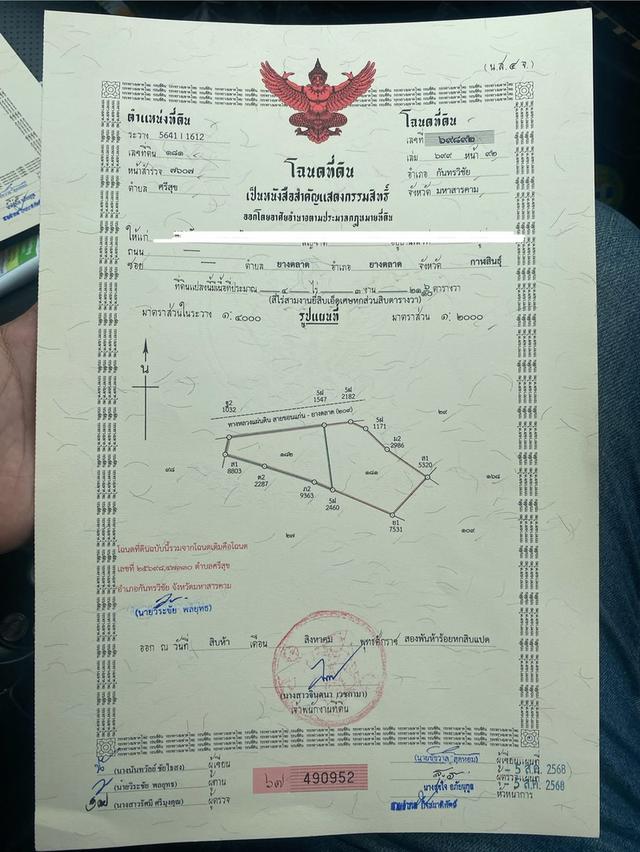 (น.ส.๔ จ.)
ตำแหน่งที่ดิน
ระวาง 5641 I 1612
เลขที่ดิน ๑๘๑
หน้าสำรวจ ๗๖๐๗
ตำบล ศรีสุข
โฉนดที่ดิน
เลขที่ ๖๙๘๙๒
เล่ม ๖๙๙ หน้า ๙๒
อำเภอ กันทรวิชัย
จังหวัด มหาสารคาม
โฉนดที่ดิน
เป็นหนังสือสำคัญแสดงกรรมสิทธิ์
ออกโดยอาศัยอำนาจตามประมวลกฎหมายที่ดิน
ให้แก่
ถนน —
ซอย — ตำบล ยางตลาด อำเภอ ยางตลาด จังหวัด กาฬสินธุ์
ที่ดินแปลงนี้มีเนื้อที่ประมาณ ๔ ไร่ ๓ งาน ตารางวา
(สี่ไร่สามงานยี่สิบเอ็ดเศษหกส่วนสิบตารางวา)
มาตราส่วนในระวาง ๑:๔๐๐๐ รูปแผนที่ มาตราส่วน ๑:๒๐๐๐
น
ฐ2
1032
5ฝ
1547
5ฝ
2182
ทางหลวงแผ่นดิน สายขอนแก่น - ยางตลาด (๒๐๙)
5ฝ
1171
ม2
2986
ส1
5320
๒๙
๑๘๒
๑๘๑
๙๘
ส1
8803
ต2
2287
ภ2
9363
5ฝ
2460
ย1
7531
๑๖๘
๒๗
๑๐๙
โฉนดที่ดินฉบับนี้รวมจากโฉนดเดิมคือโฉนด
เลขที่ ๒๕๖๙๘,๔๗๑๓๐ ตำบลศรีสุข
อำเภอกันทรวิชัย จังหวัดมหาสารคาม
(นายวีระชัย พลยุทธ)
ออก ณ วันที่ สิบห้า เดือน สิงหาคม พุทธศักราช สองพันห้าร้อยหกสิบแปด
(นางสาวจินตนา เวชกามา)
เจ้าพนักงานที่ดิน
(นางนันทวัลย์ ชัยโสง) ผู้เขียน
(นายวีระชัย พลยุทธ) ผู้ทาน
(นางสาวรัศมี ศรีมุงคุณ) ผู้ตรวจ
๖๗ 490952
ผู้เขียนแผนที่
- 5 ส.ค. 2568
ผู้ตรวจแผนที่
- 5 ส.ค. 2568
หัวหน้าการ